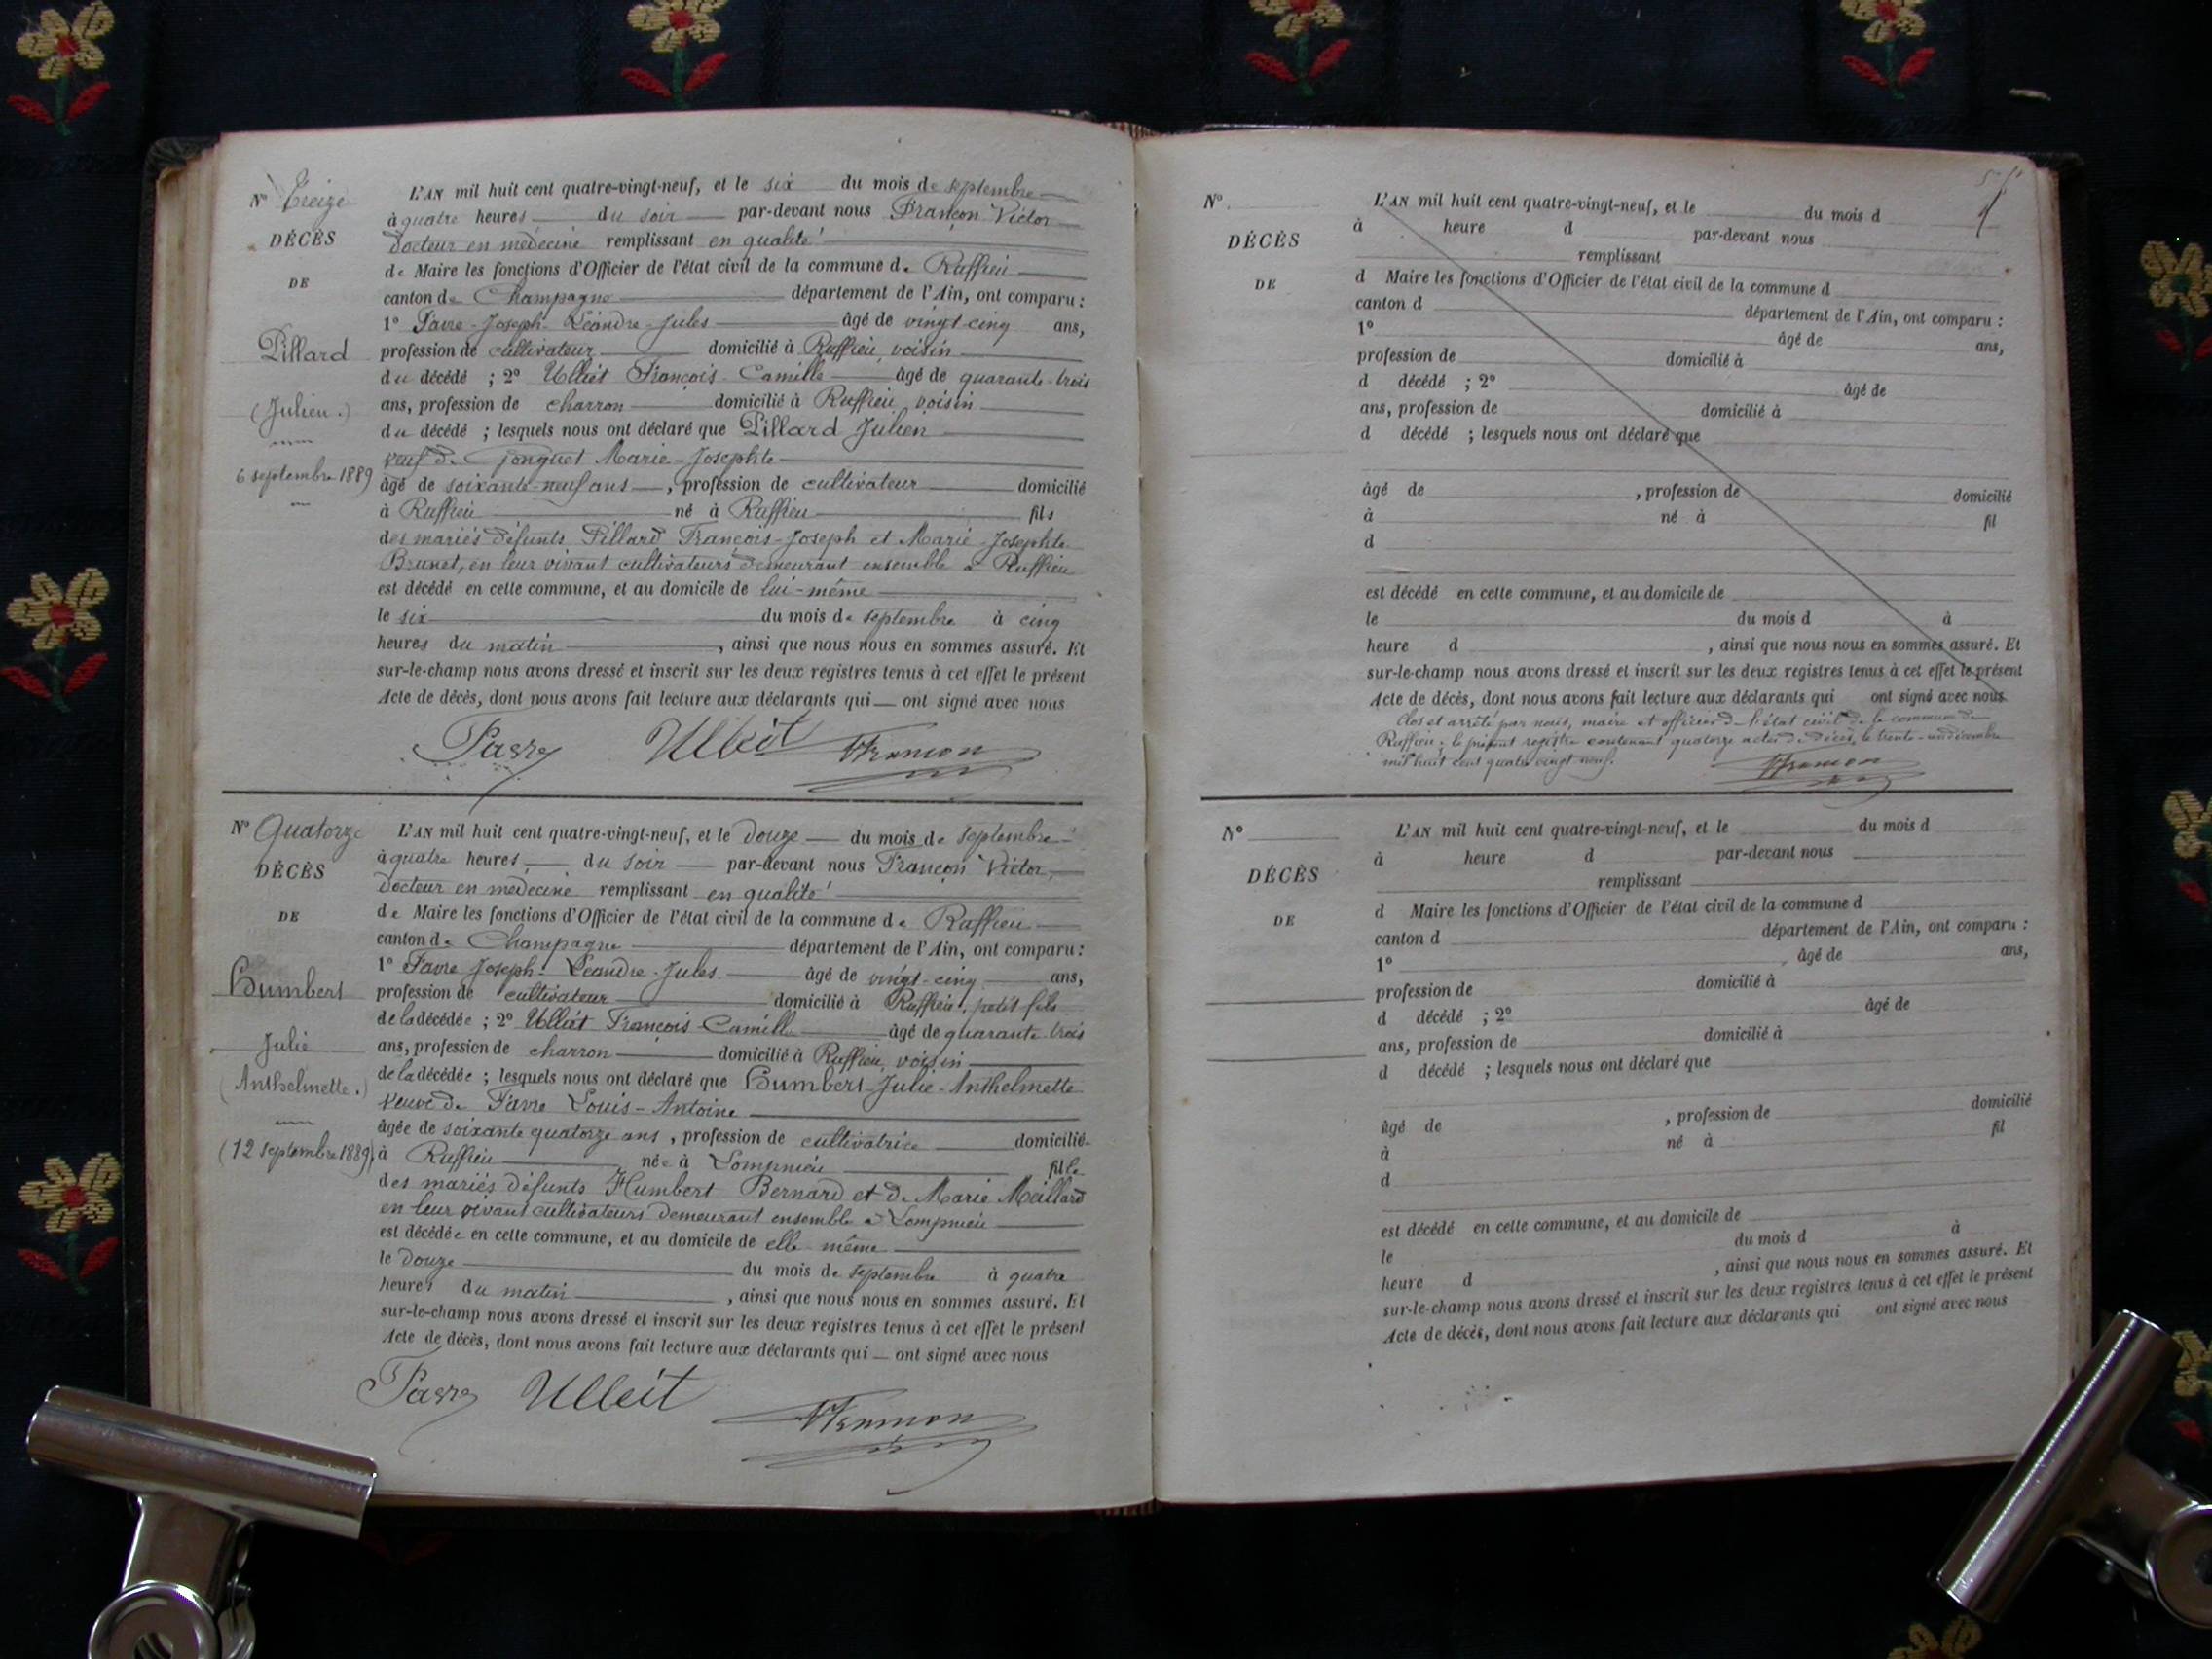 N° Treize
DÉCÈS
DE
Pillard
(Julien.)
6 septembre 1889
L'AN mil huit cent quatre-vingt-neuf, et le six du mois de septembre
à quatre heures du soir par-devant nous Françon Victor
docteur en médecine remplissant en qualité
de Maire les fonctions d'Officier de l'état civil de la commune de Ruffieu
canton de Champagne département de l'Ain, ont comparu :
1° Favre Joseph-Léandre-Jules âgé de vingt-cinq ans,
profession de cultivateur domicilié à Ruffieu, voisin
du décédé ; 2° Ulliet François-Camille âgé de quarante-trois
ans, profession de charron domicilié à Ruffieu, voisin
du décédé ; lesquels nous ont déclaré que Pillard Julien
veuf de Jonguet Marie-Josephte
âgé de soixante-neuf ans, profession de cultivateur domicilié
à Ruffieu né à Ruffieu fils
des mariés défunts Pillard François-Joseph et Marie-Josephte
Brunet, en leur vivant cultivateurs demeurant ensemble à Ruffieu
est décédé en cette commune, et au domicile de lui-même
le six du mois de septembre à cinq
heures du matin, ainsi que nous nous en sommes assuré. Et
sur-le-champ nous avons dressé et inscrit sur les deux registres tenus à cet effet le présent
Acte de décès, dont nous avons fait lecture aux déclarants qui ont signé avec nous
Favre Ulliet VFrançon
N° Quatorze
DÉCÈS
DE
Humbert
Julie
(Anthelmette.)
(12 septembre 1889)
L'AN mil huit cent quatre-vingt-neuf, et le douze du mois de septembre
à quatre heures du soir par-devant nous Françon Victor,
docteur en médecine remplissant en qualité
de Maire les fonctions d'Officier de l'état civil de la commune de Ruffieu
canton de Champagne département de l'Ain, ont comparu :
1° Favre Joseph-Léandre-Jules âgé de vingt-cinq ans,
profession de cultivateur domicilié à Ruffieu, petit fils
de la décédée ; 2° Ulliet François-Camille âgé de quarante-trois
ans, profession de charron domicilié à Ruffieu, voisin
de la décédée ; lesquels nous ont déclaré que Humbert Julie-Anthelmette
veuve de Favre Louis-Antoine
âgée de soixante quatorze ans, profession de cultivatrice domiciliée
à Ruffieu née à Lompnieu fille
des mariés défunts Humbert Bernard et de Marie Meillard
en leur vivant cultivateurs demeurant ensemble à Lompnieu
est décédée en cette commune, et au domicile de elle-même
le douze du mois de septembre à quatre
heures du matin, ainsi que nous nous en sommes assuré. Et
sur-le-champ nous avons dressé et inscrit sur les deux registres tenus à cet effet le présent
Acte de décès, dont nous avons fait lecture aux déclarants qui ont signé avec nous
Favre Ulliet VFrançon
N°
DÉCÈS
DE
L'AN mil huit cent quatre-vingt-neuf, et le du mois d
à heure d par-devant nous
remplissant
d Maire les fonctions d'Officier de l'état civil de la commune d
canton d département de l'Ain, ont comparu :
1° âgé de ans,
profession de domicilié à
d décédé ; 2° âgé de
ans, profession de domicilié à
d décédé ; lesquels nous ont déclaré que
âgé de , profession de domicilié
à né à fil
d
est décédé en cette commune, et au domicile de
le du mois d à
heure d , ainsi que nous nous en sommes assuré. Et
sur-le-champ nous avons dressé et inscrit sur les deux registres tenus à cet effet le présent
Acte de décès, dont nous avons fait lecture aux déclarants qui ont signé avec nous
Clos et arrêté par nous, maire et officier de l'état civil de la commune de
Ruffieu, le présent registre contenant quatorze actes de décès, le trente-un décembre
mil huit cent quatre vingt neuf.
VFrançon
N°
DÉCÈS
DE
L'AN mil huit cent quatre-vingt-neuf, et le du mois d
à heure d par-devant nous
remplissant
d Maire les fonctions d'Officier de l'état civil de la commune d
canton d département de l'Ain, ont comparu :
1° , âgé de ans,
profession de domicilié à
d décédé ; 2° âgé de
ans, profession de domicilié à
d décédé ; lesquels nous ont déclaré que
âgé de , profession de domicilié
à né à fil
d
est décédé en cette commune, et au domicile de
le du mois d à
heure d , ainsi que nous nous en sommes assuré. Et
sur-le-champ nous avons dressé et inscrit sur les deux registres tenus à cet effet le présent
Acte de décès, dont nous avons fait lecture aux déclarants qui ont signé avec nous